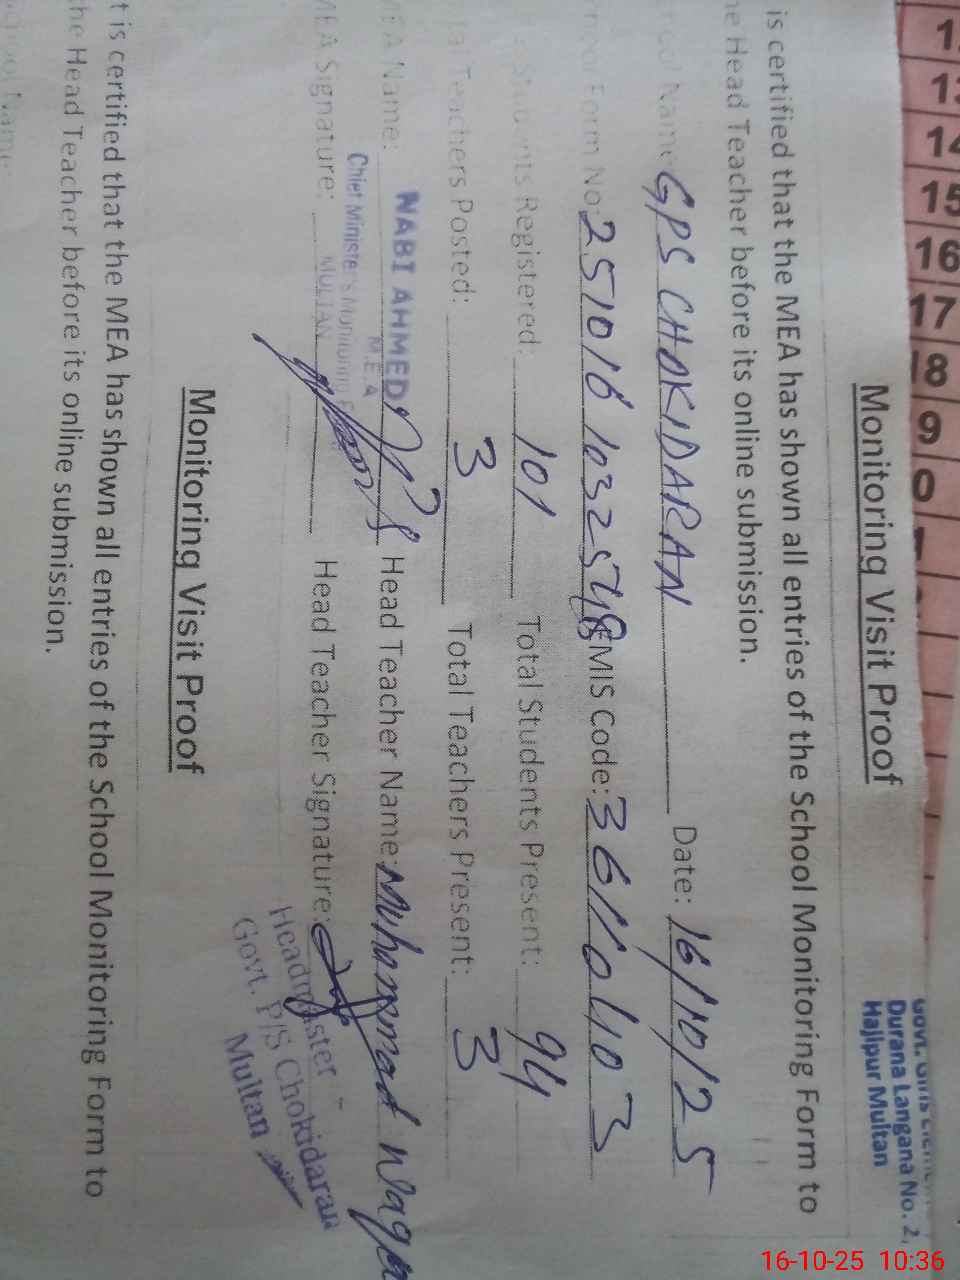 1
1
14
15
16
17
18
9
0
1
Durana Langana No. 2,
Hajipur Multan
Monitoring Visit Proof
is certified that the MEA has shown all entries of the School Monitoring Form to
he Head Teacher before its online submission.
ool Name GPS CHOKIDARAN Date: 16/10/25
Form No: EMIS Code: 36110403
Students Registered: 101 Total Students Present: 94
Teachers Posted: 3 Total Teachers Present: 3
MEA Name: NABI AHMED Head Teacher Name: Muhammad Waqa
M.E.A
Chief Minister's Monitoring F
MULTAN
MEA Signature: Head Teacher Signature:
Headmaster
Govt. P/S Chokidaran
Multan
Monitoring Visit Proof
t is certified that the MEA has shown all entries of the School Monitoring Form to
he Head Teacher before its online submission.
ool Name
16-10-25 10:36